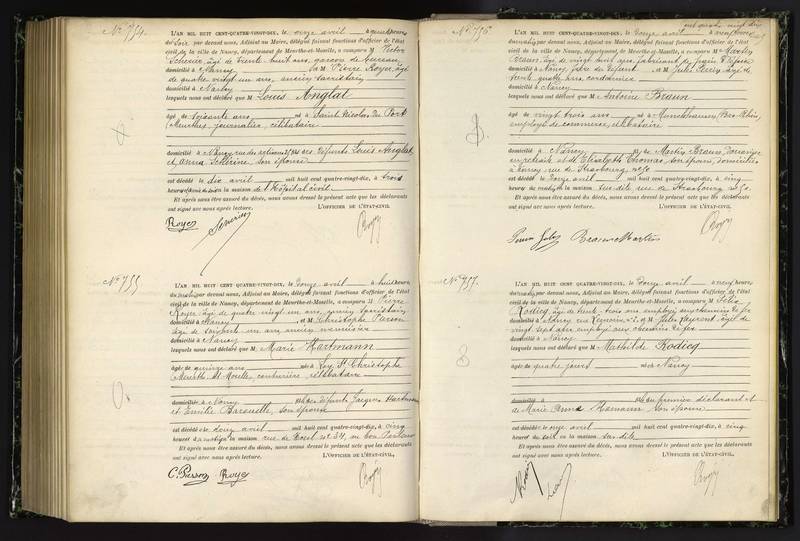 No 754.
L'AN MIL HUIT CENT-QUATRE-VINGT-DIX, le onze avril à
du soir par devant nous, Adjoint au Maire, délégué faisant fonctions d'officier de l'état
civil de la ville de Nancy, département de Meurthe-et-Moselle, a comparu M
âgé de trente huit ans, garçon de bureau,
domicilié à Nancy et M Pierre Royer, âgé
de quatre vingt un ans, ancien sacristain
domicilié à Nancy
lesquels nous ont déclaré que M Louis Anglat
âgé de soixante ans né à Saint Nicolas du Port
(Meurthe), journalier, célibataire
domicilié à Nancy, défunts Louis Anglat
et Anna son épouse
est décédé le dix avril mil huit cent quatre-vingt-dix, à trois
heures en la maison de l'Hôpital civil
Et après nous être assuré du décès, nous avons dressé le présent acte que les déclarants
ont signé avec nous après lecture. L'OFFICIER DE L'ÉTAT-CIVIL,
Royer
No 755
L'AN MIL HUIT CENT QUATRE-VINGT-DIX, le douze avril à huit heures
du matin par devant nous, Adjoint au Maire, délégué faisant fonctions d'officier de l'état
civil de la ville de Nancy, département de Meurthe-et-Moselle, a comparu M Pierre
Royer, âgé de quatre vingt un ans, ancien sacristain
domicilié à Nancy et M Christophe Pierson
âgé de soixante un ans, ancien
domicilié à Nancy
lesquels nous ont déclaré que M Marie Hartmann
âgée de quinze ans née à Ley St Christophe
Meurthe et Moselle, couturière, célibataire
domiciliée à Nancy, fille des défunts Jacques Hartmann
et Emilie son épouse
est décédée le avril mil huit cent quatre-vingt-dix, à cinq
heures du matin en la maison rue de Toul no 34, au bon Pasteur
Et après nous être assuré du décès, nous avons dressé le présent acte que les déclarants
ont signé avec nous après lecture. L'OFFICIER DE L'ÉTAT-CIVIL,
C. Pierson Royer
No 756
mil huit cent quatre vingt dix
L'AN MIL HUIT CENT-QUATRE-VINGT-DIX, le douze avril à neuf heures
du matin par devant nous, Adjoint au Maire, délégué faisant fonctions d'officier de l'état
civil de la ville de Nancy, département de Meurthe-et-Moselle, a comparu M Martin
Braun, âgé de vingt huit ans, fabricant de
domicilié à Nancy, frère du défunt, et M Jules âgé de
trente quatre ans, cordonnier
domicilié à Nancy
lesquels nous ont déclaré que M Antoine Braun
âgé de vingt trois ans né à (Bas-Rhin)
employé de commerce, célibataire
domicilié à Nancy, fils de Martin Braun,
en retraite et de Elisabeth Thomas, son épouse, domiciliés
à Nancy rue de Strasbourg
est décédé le douze avril mil huit cent quatre-vingt-dix, à cinq
heures du matin en la maison sus dite rue de Strasbourg
Et après nous être assuré du décès, nous avons dressé le présent acte que les déclarants
ont signé avec nous après lecture. L'OFFICIER DE L'ÉTAT-CIVIL,
Jules Braun Martin
No 757.
L'AN MIL HUIT CENT QUATRE-VINGT-DIX, le douze avril à neuf heures
du matin par devant nous, Adjoint au Maire, délégué faisant fonctions d'officier de l'état
civil de la ville de Nancy, département de Meurthe-et-Moselle, a comparu M Félix
Rodicq, âgé de trente trois ans, employé aux chemins de fer
domicilié à Nancy et M Jules âgé de
vingt sept ans employé aux chemins de fer
domicilié à Nancy
lesquels nous ont déclaré que M Mathilde Rodicq
âgée de quatre jours née à Nancy
domiciliée à fille du premier déclarant et
de Marie Anna son épouse
est décédée le onze avril mil huit cent quatre-vingt-dix, à cinq
heures du soir en la maison sus dite
Et après nous être assuré du décès, nous avons dressé le présent acte que les déclarants
ont signé avec nous après lecture. L'OFFICIER DE L'ÉTAT-CIVIL,